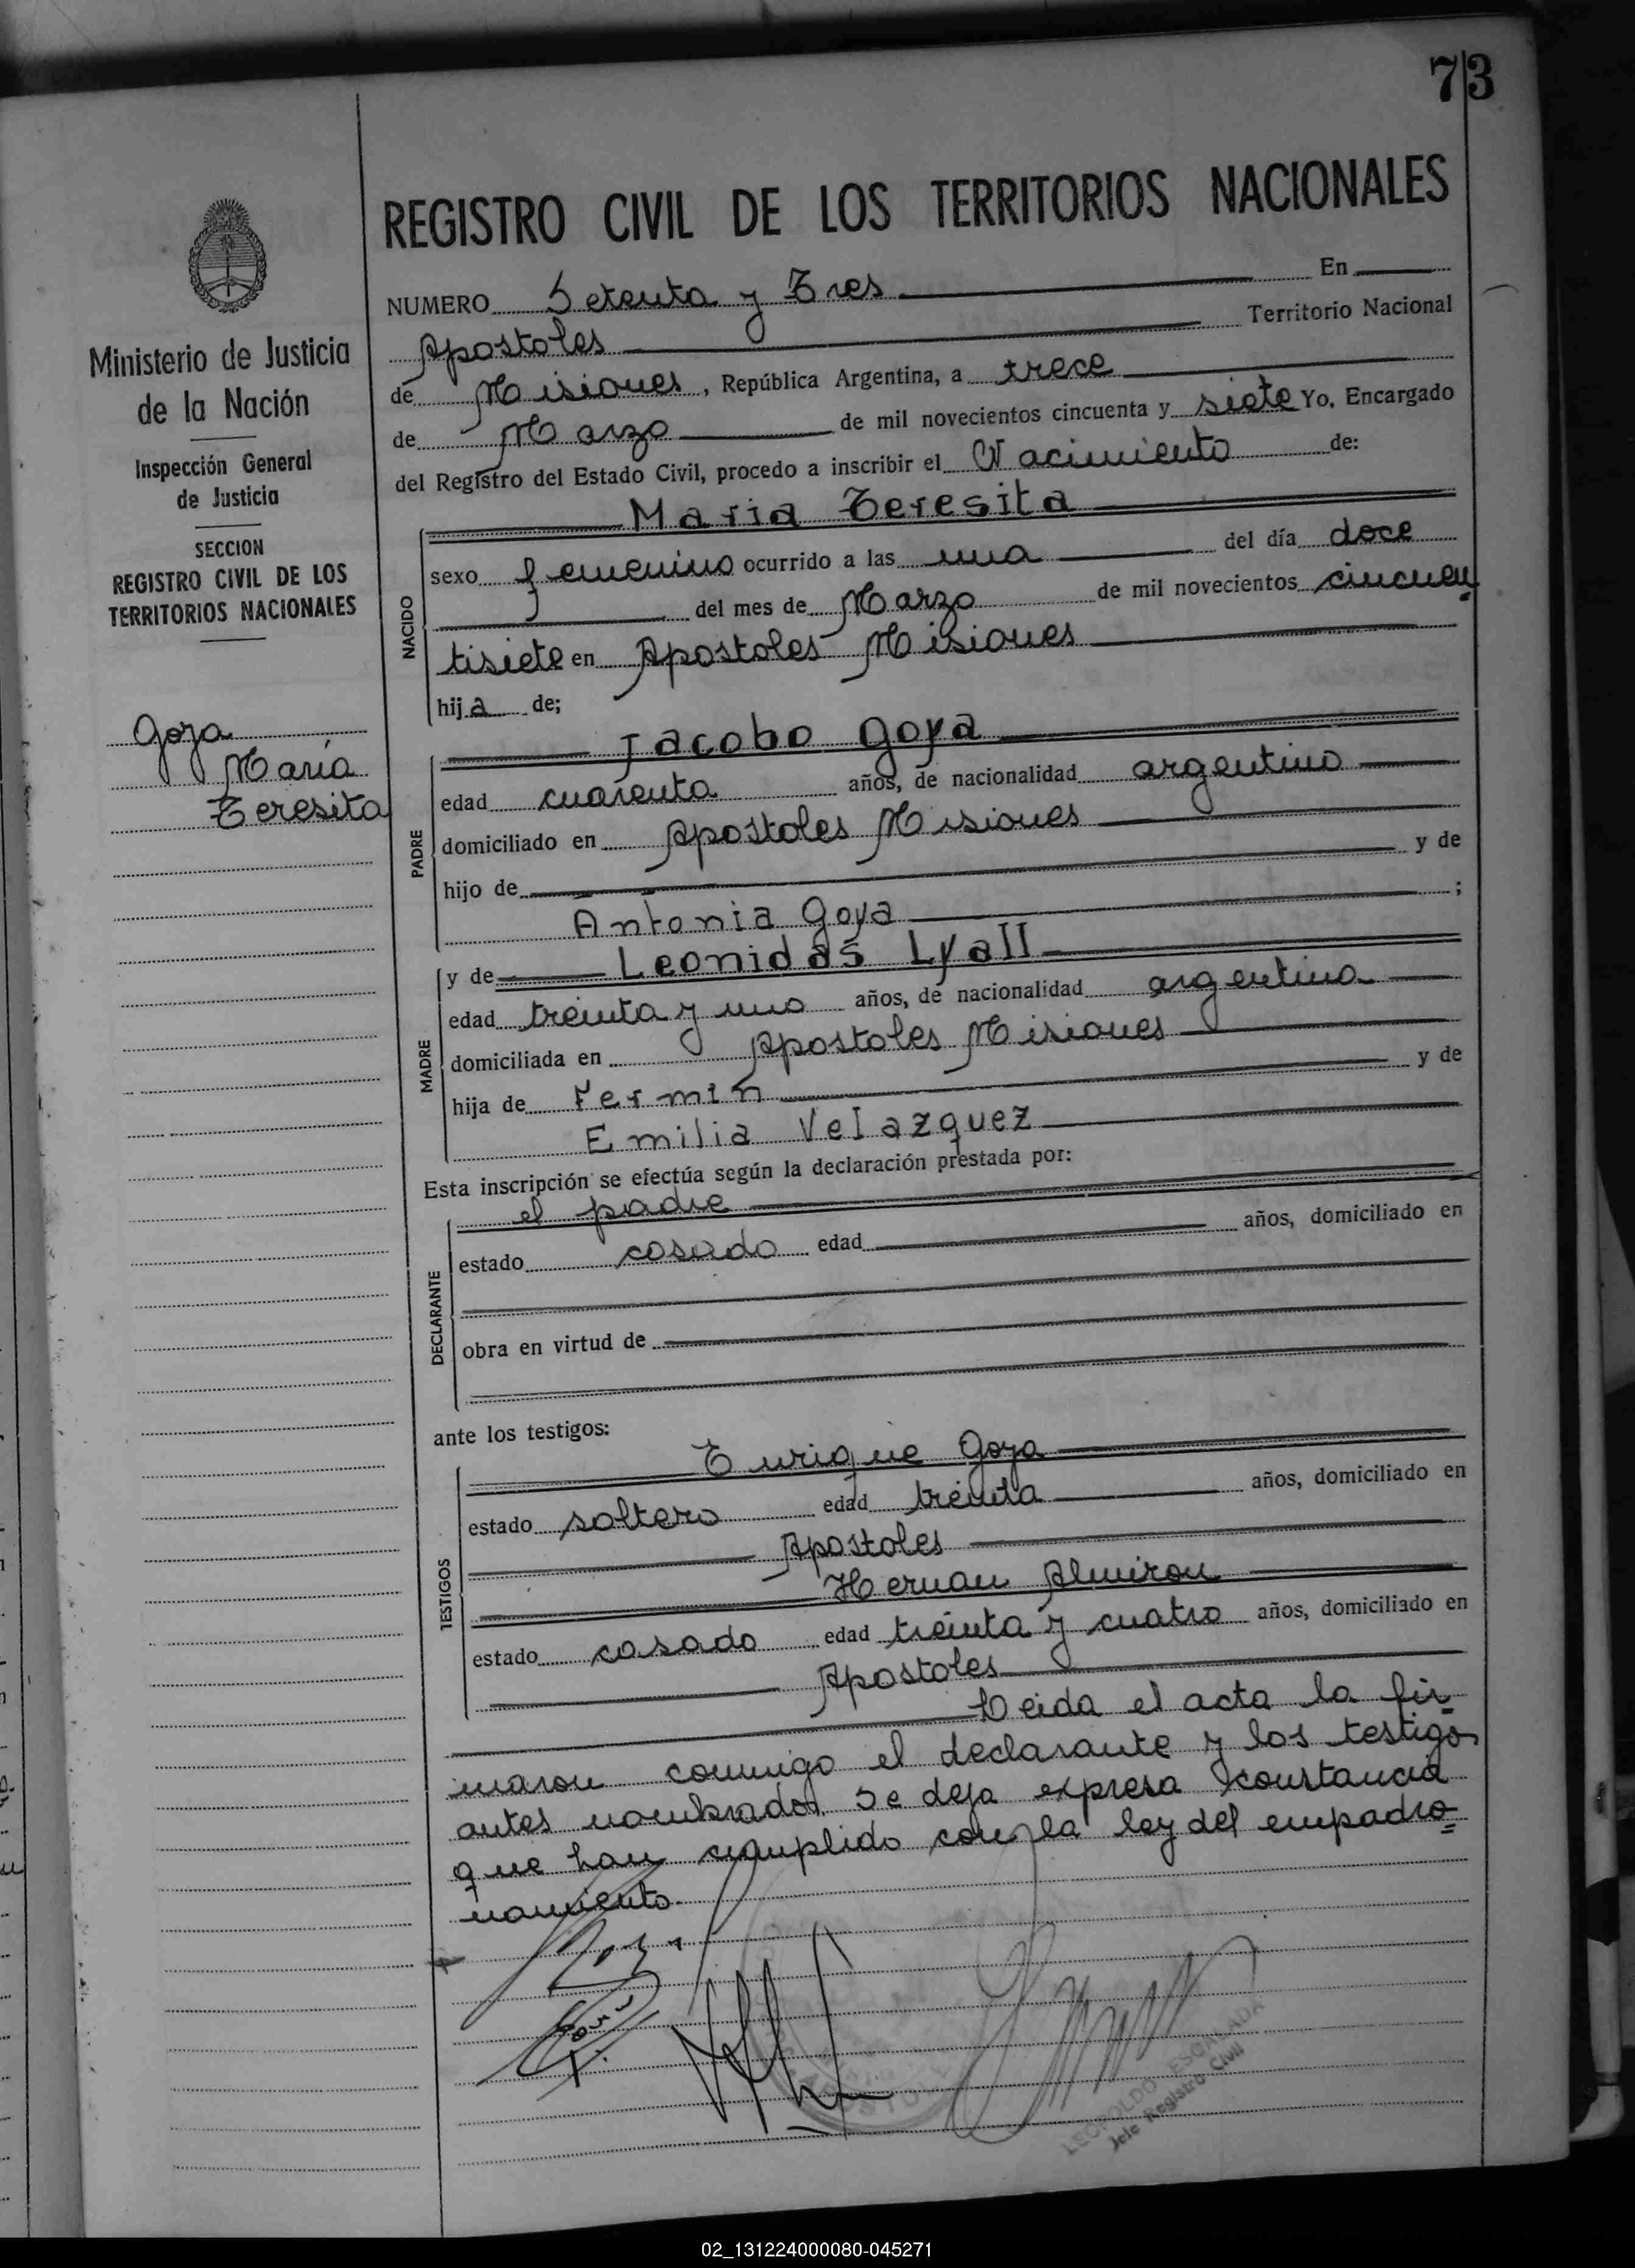 73
REGISTRO CIVIL DE LOS TERRITORIOS NACIONALES
Ministerio de Justicia
de la Nación
Inspección General
de Justicia
SECCION
REGISTRO CIVIL DE LOS
TERRITORIOS NACIONALES
Goya
María
Teresita
NUMERO Setenta y Tres En
Apostoles Territorio Nacional
de Misiones, República Argentina, a trece
de Marzo de mil novecientos cincuenta y siete Yo, Encargado
del Registro del Estado Civil, procedo a inscribir el Nacimiento de:
NACIDO
Maria Teresita
sexo femenino ocurrido a las una del día doce
del mes de Marzo de mil novecientos cincuen
tisiete en Apostoles Misiones
hija de;
PADRE
Jacobo Goya
edad cuarenta años, de nacionalidad argentino
domiciliado en Apostoles Misiones
hijo de y de
Antonia Goya ;
MADRE
y de Leonidas Lyall
edad treinta y uno años, de nacionalidad argentina
domiciliada en Apostoles Misiones
hija de Fermin y de
Emilia Velazquez
Esta inscripción se efectúa según la declaración prestada por:
DECLARANTE
el padre
estado casado edad años, domiciliado en
obra en virtud de
ante los testigos:
TESTIGOS
Enrique Goya
estado soltero edad treinta años, domiciliado en
Apostoles
Hernan Almiron
estado casado edad treinta y cuatro años, domiciliado en
Apostoles
Leida el acta la fir
maron conmigo el declarante y los testigos
antes nombrados se deja expresa constancia
que han cumplido con la ley del empadro=
namiento.
LEOPOLDO ESCALADA
Jefe Registro Civil
02_131224000080-045271